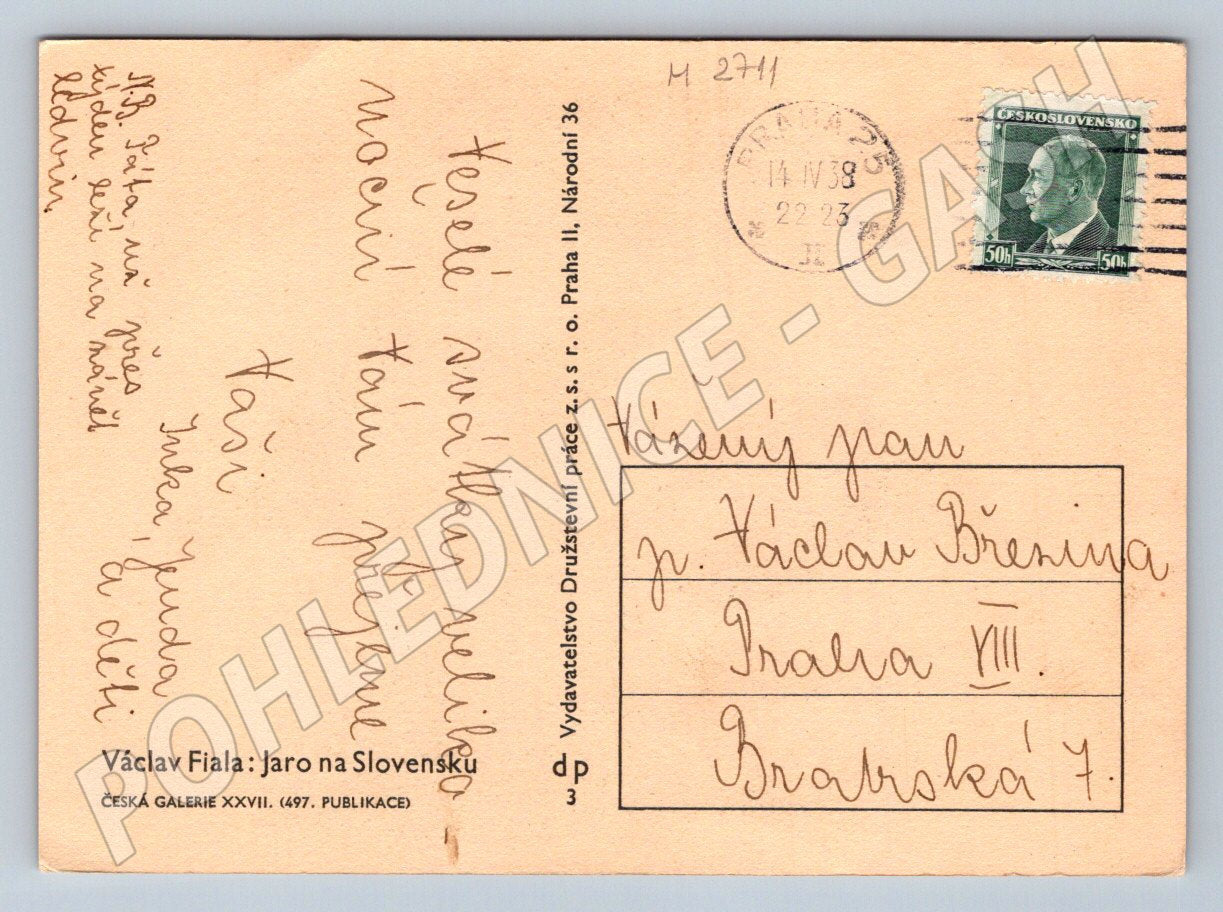 M 2711
PRAHA 25
14 IV 38
22-23
ČESKOSLOVENSKO
50h 50h
Veselé svátky veliko
noční Vám přejeme
Vaši
Inka, Jenda
a děti
N.B. Táta už přes
týden leží na zánět
ledvin.
Vydavatelstvo Družstevní práce z. s. s r. o. Praha II, Národní 36
dp
3
Vážený pan
p. Václav Březina
Praha VIII.
Bratrská 7.
Václav Fiala: Jaro na Slovensku
ČESKÁ GALERIE XXVII. (497. PUBLIKACE)
POHLEDNICE - GASH